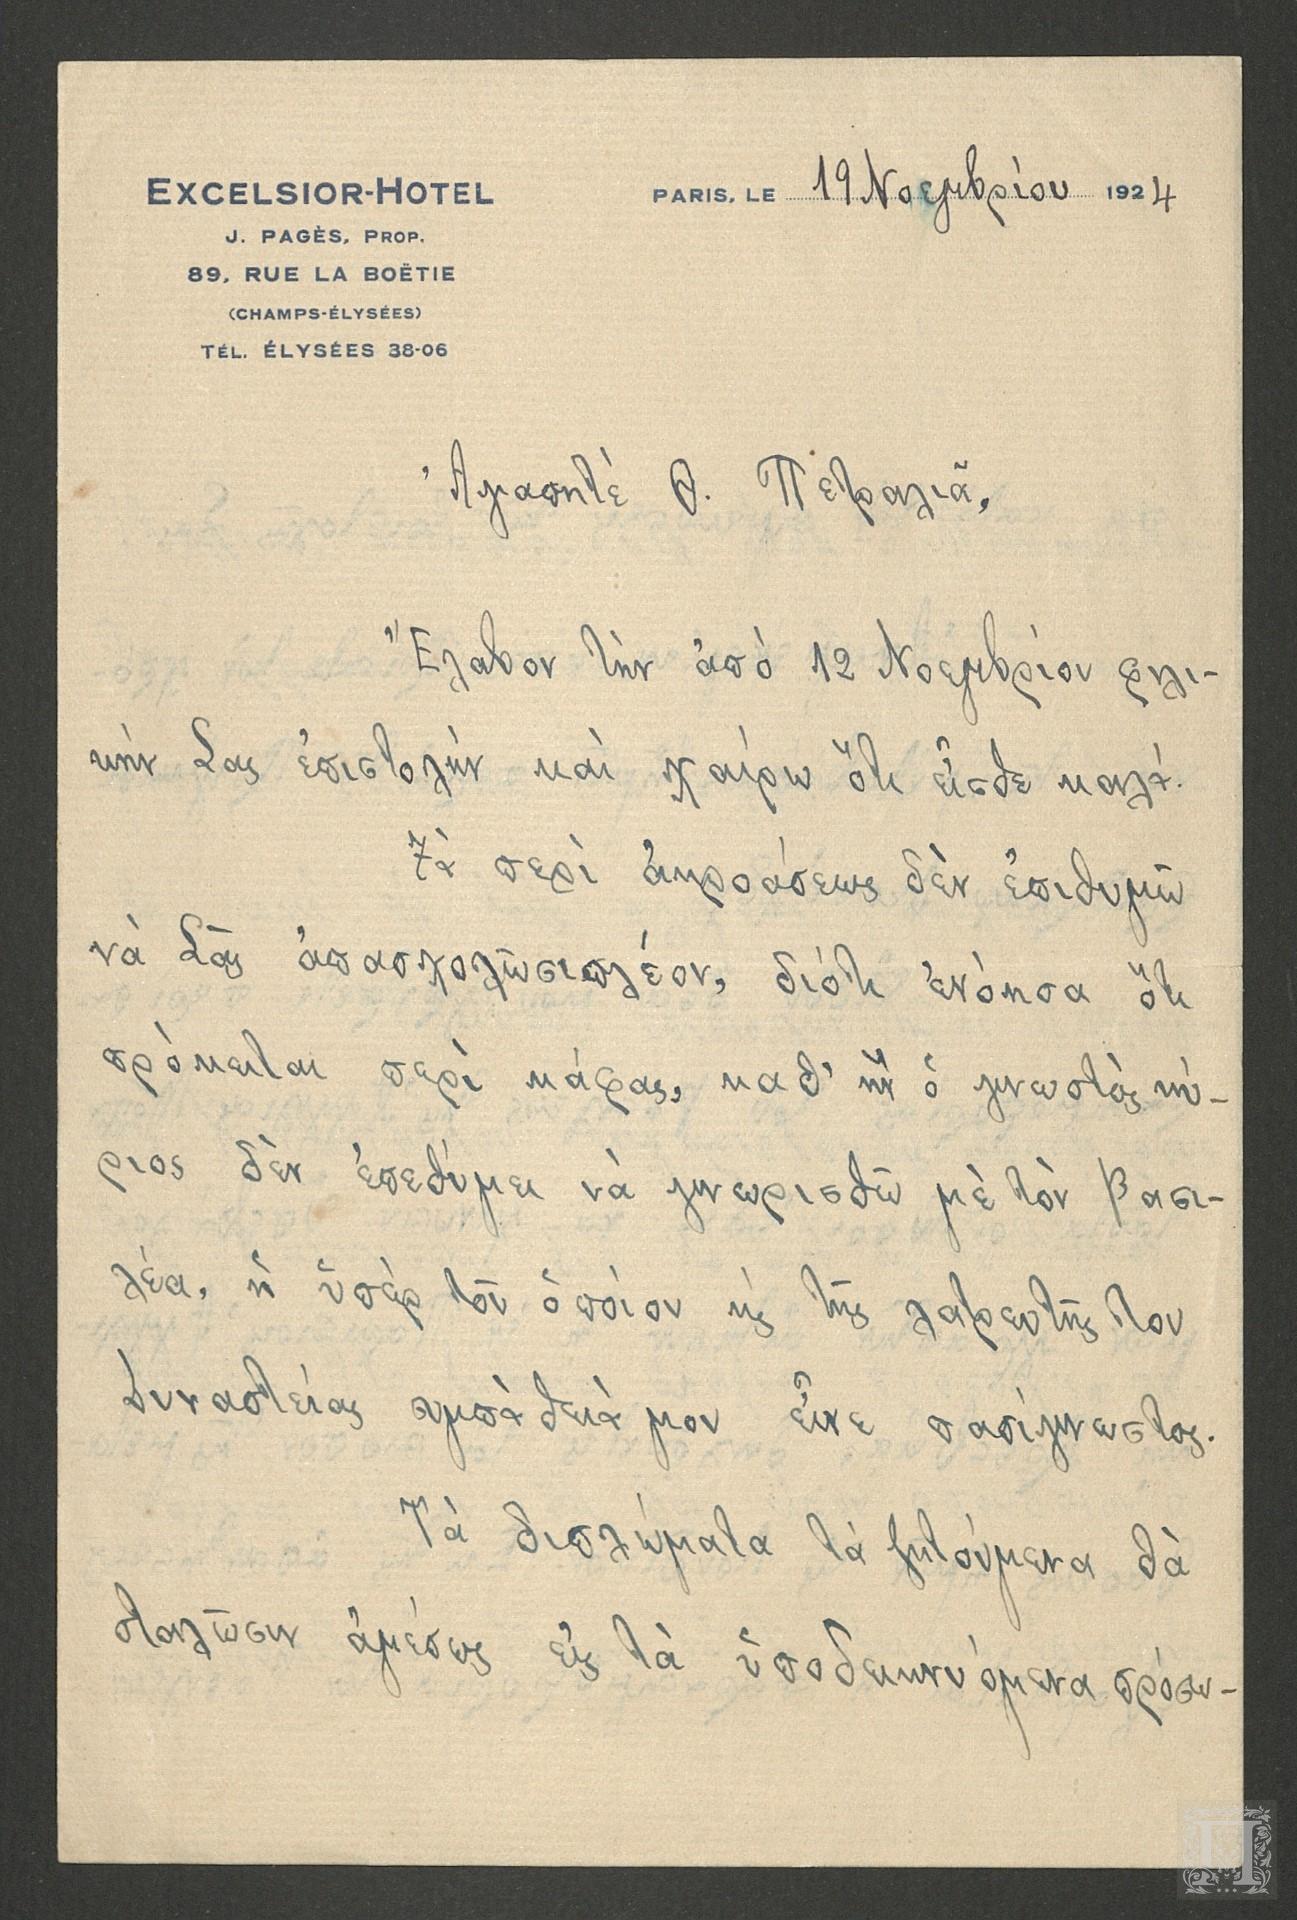 EXCELSIOR-HOTEL
J. PAGÈS, PROP.
89, RUE LA BOËTIE
(CHAMPS-ÉLYSÉES)
TÉL. ÉLYSÉES 38-06
PARIS, LE 19 Νοεμβρίου 1924
Ἀγαπητὲ Θ. Πετραλιᾶ,
Ἔλαβον τὴν ἀπὸ 12 Νοεμβρίου φιλι-
κήν Σας ἐπιστολὴν καὶ χαίρω ὅτι εἶσθε καλά.
Τὰ περὶ ἀκροάσεως δὲν ἐπιθυμῶ
νὰ Σᾶς ἀπασχολῶσι πλέον, διότι ἐνόησα ὅτι
πρόκειται περὶ κάφας, καθ' ἣν ὁ γνωστὸς κύ-
ριος δὲν ἐπεθύμει νὰ γνωρισθῶ μὲ τὸν βασι-
λέα, ἡ ὑπὲρ τοῦ ὁποίου κ̀ς τῆς λατρευτῆς του
Δυναστείας συμπάθειά μου εἶνε πασίγνωστος.
Τὰ διπλώματα τὰ ζητούμενα θὰ
σταλῶσιν ἀμέσως εἰς τὰ ὑποδεικνυόμενα πρόσω-